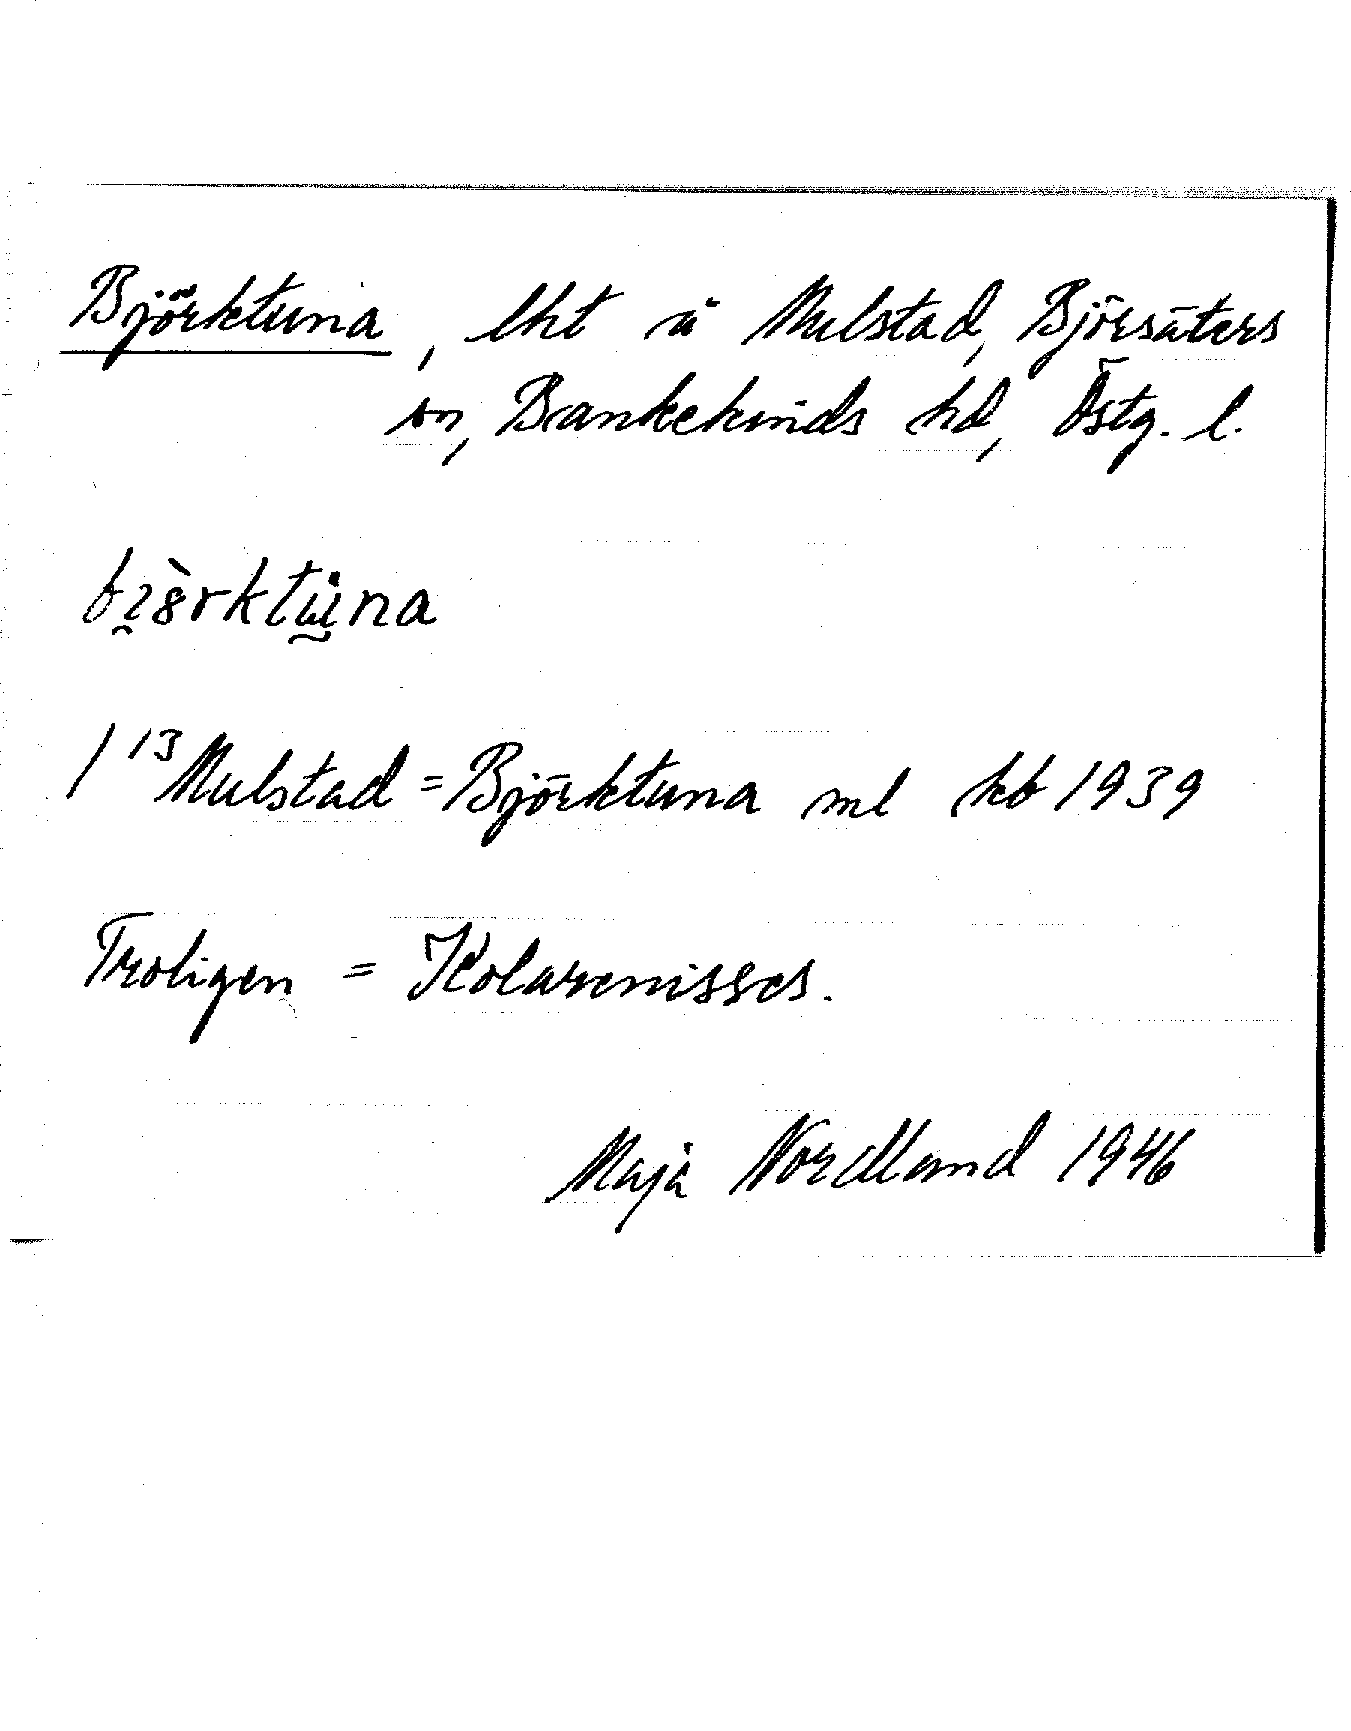 Björktuna, lht å Mulstad, Björsäters
sn, Bankekinds hd, Östg. l.
/ 13 Mulstad = Björktuna ml kb 1939
Troligen = Kolarenisses.
Maja Nordland 1946